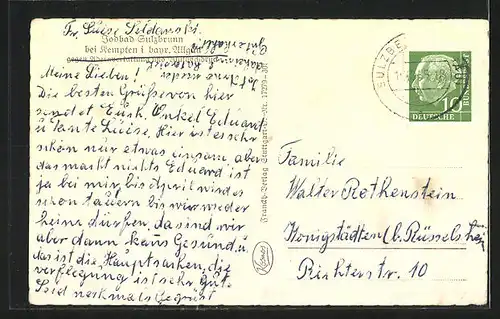 Fr. Luise Seldanskt.
Jodbad Sulzbrunn
bei Kempten i. bayr. Allgäu
gegen Adernverkalkung und
Meine Lieben!
Die besten Grüße von hier
sendet Eush. Onkel Eduard
u Tante Luise, Hier ist es sehr
schön nur etwas einsam aber
das macht nichts Eduard ist
ja bei mir, bis April wird es
schon dauern bis wir wieder
heime dürfen, da sind wir
aber dann Gesund u.
das ist die Hauptsachen, die
verflegung ist sehr gut.
Seid nochmals Gegrüst
Franckh-Verlag Stuttgart
Kosmos
SULZBE
10
DEUTSCHE
BUNDESPOST
Familie
Walter Rothenstein
Königstädten (b. Rüssels
Richterstr. 10